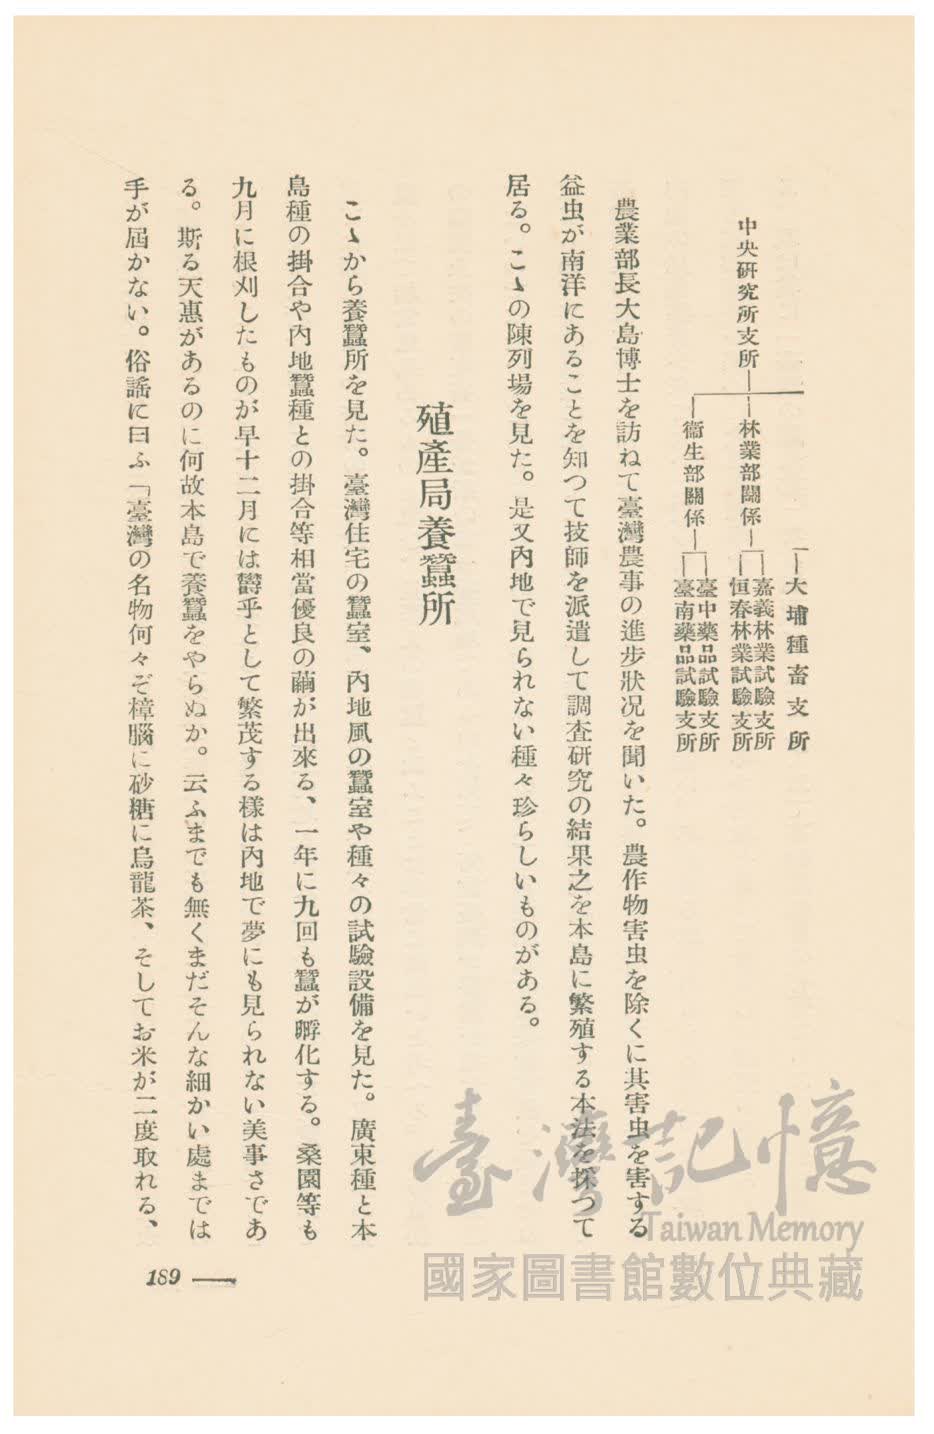 大埔種畜支所
中央研究所支所
林業部關係
嘉義林業試驗支所
恒春林業試驗支所
衞生部關係
臺中藥品試驗支所
臺南藥品試驗支所
農業部長大島博士を訪ねて臺灣農事の進步狀況を聞いた。農作物害虫を除くに其害虫を害する
益虫が南洋にあることを知つて技師を派遣して調査研究の結果之を本島に繁殖する本法を採つて
居る。こゝの陳列場を見た。是又內地で見られない種々珍らしいものがある。
殖產局養蠶所
こゝから養蠶所を見た。臺灣住宅の蠶室、內地風の蠶室や種々の試驗設備を見た。廣東種と本
島種の掛合や內地蠶種との掛合等相當優良の繭が出來る、一年に九回も蠶が孵化する。桑園等も
九月に根刈したものが早十二月には欝乎として繁茂する樣は內地で夢にも見られない美事さであ
る。斯る天惠があるのに何故本島で養蠶をやらぬか。云ふまでも無くまだそんな細かい處までは
手が屆かない。俗謠に曰ふ「臺灣の名物何々ぞ樟腦に砂糖に烏龍茶、そしてお米が二度取れる、
189
臺灣記憶
Taiwan Memory
國家圖書館數位典藏